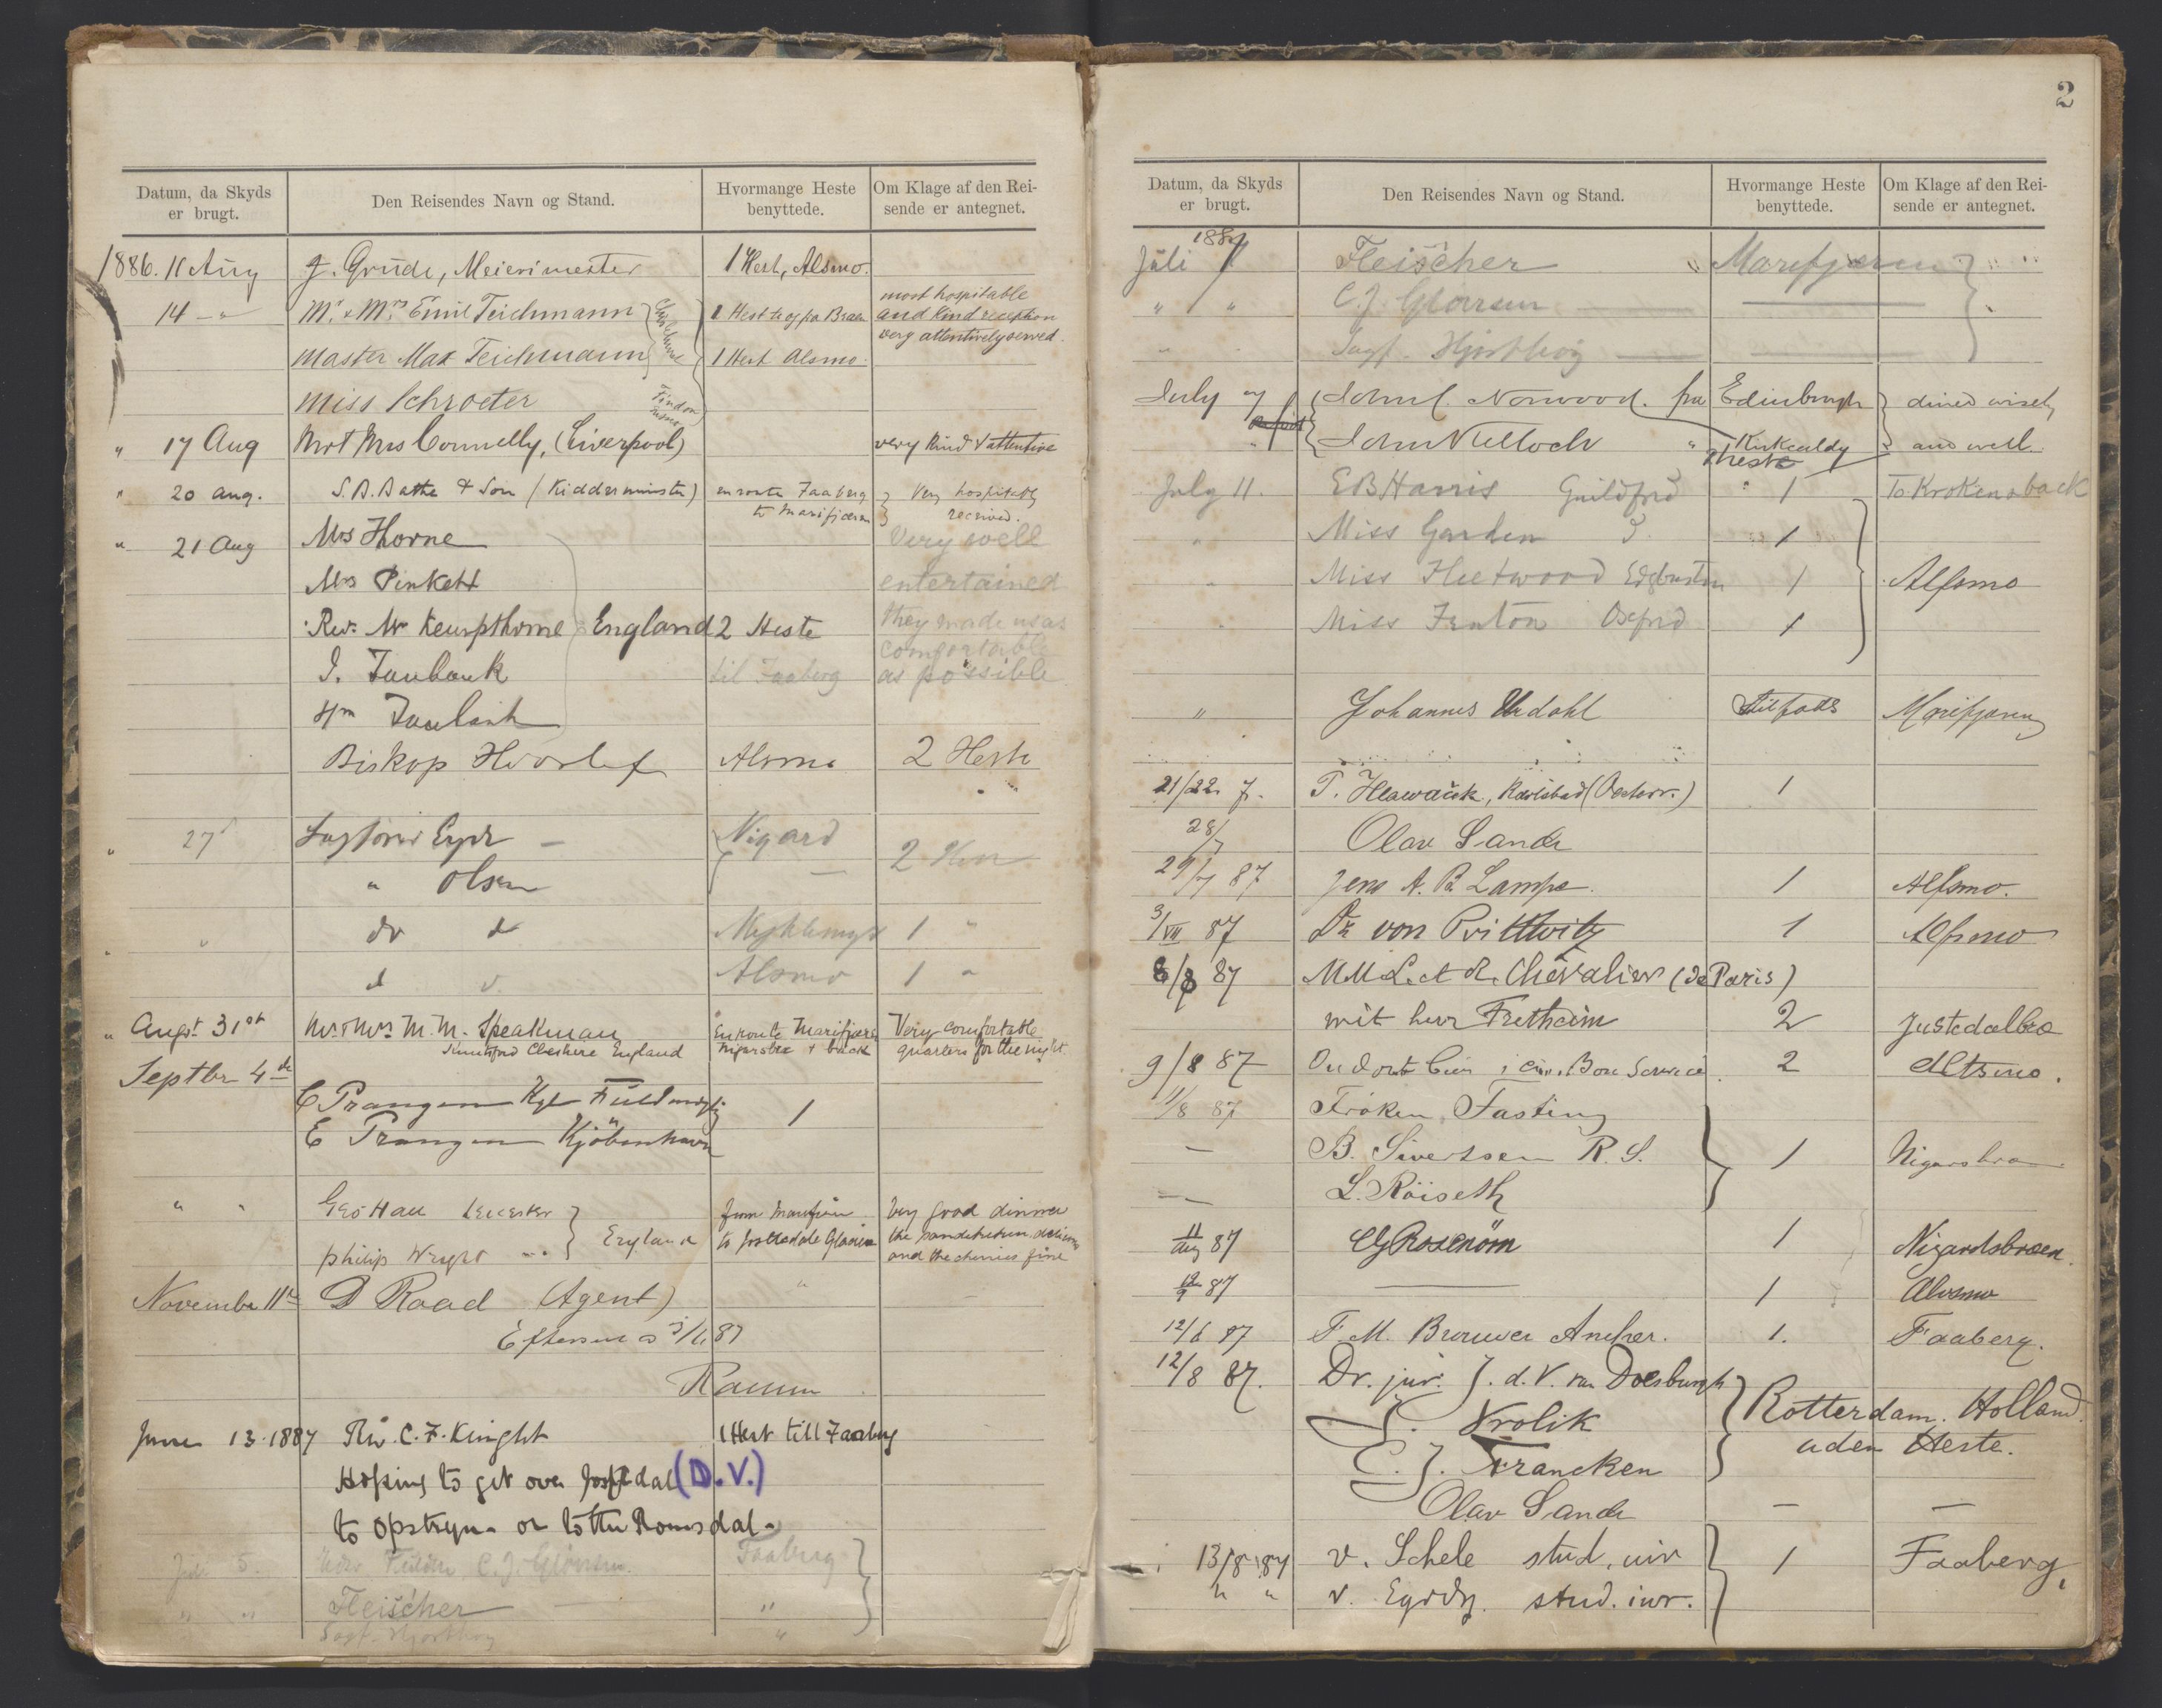 Datum, da Skyds er brugt.
Den Reisendes Navn og Stand.
Hvormange Heste benyttede.
Om Klage af den Reisende er antegnet.
1886. 11 Aug J. Grude, Meierimester 1 Hest, Alsmo.
14 - " Mr. & Mrs Emil Teichmann 1 Hest til og fra Bræen most hospitable and kind reception very attentively served.
Master Max Teichmann 1 Hest Alsmo
Miss Schroeter
" 17 Aug Mr & Mrs Connelly, (Liverpool) very kind & attentive
" 20 aug. S. B. Bathe & Son (Kidderminster) en route Faaberg to Marifjæren Very hospitably received.
" 21 Aug Mrs Thorne Very well
Mrs Pinkett entertained
Rev. Mr Kempthorne England 2 Heste they made us as
J. Fawbank til Faaberg comfortable as possible
Wm
Biskop Hvoslef Alsmo 2 Heste
" 27 Sagfører Eyde - Nigard 2 Hest
" Olsen -
" " do do 1 "
d d Alsmo 1 "
" Augst 31st Mr & Mrs M. M. Speakman En route Marifjæren Very comfortable
Knutsford Cheshire England Nigarsbræ & back quarters for the night.
Septbr 4de
C Prangen Kgl Fuldmægtig 1
E Prangen Kjöbenhavn
" " Geo Hall Leicester from Marifjæren Very good dinner
Philip Wright " England to Jostedale Glacier the pandekaken delicious and the cherries fine
November 11te D Raad (Agent) " -
Efterseet 87
June 13. 1887 Rev. C. F. Knight 1 Hest till Faaberg
Hoping to get over Jostedal (D.V.)
to Opstryn or to the Romsdal.
Juli 5. C. J. Gløersen. Faaberg
" " Fleischer "
Sagf. Hjorthøy "
2
Datum, da Skyds er brugt.
Den Reisendes Navn og Stand.
Hvormange Heste benyttede.
Om Klage af den Reisende er antegnet.
1887
Juli 7 Fleischer " Marifjæren " "
" " C. J. Gløersen "
" Sagf. Hjorthøy
July 7 John Norwood. fra Edinburgh dined wisely
" John Nulloch " Kirkcaldy and well.
Heste
July 11. E B Harris Guildford " 1 To Kroken & back
" Miss Garden Do 1
" Miss Fleetwood Edgbaston 1 Alfsmo
" Miss Fenton Oxford 1
" Johannes Urdahl Tilfods Marifjæren
21/22 7. T. Hlawaček, Karlsbad (Oesterr.) 1
28/7 Olav Sande
29/7 87 Jens A. B. Lampe. 1 Alfsmo.
3/VII 87 Dr von Prittwitz 1 Alfsmo
8/8 87 MM L. et R. Chevalier (de Paris)
mit herr Fretheim 2 Justedalbræ
9/8 87 2 Altsmo.
11/8 87 Frøken Fasting
- B. Sivertsen R. S. 1 Nigarsbræ
- L. Röiseth
11/Aug 87 C G Rosenörn 1 Nigardsbræen.
12/9 87 1 Alvsmo
12/8 87 F. M. Brouwer Ancher. 1. Faaberg.
12/8 87. Dr. jur. J. d. V. van Doesburgh
J. Vrolik Rotterdam. Holland.
C. J. Francken uden Heste.
Olav Sande - -
13/8 87 v. Schele stud. iur 1 Faaberg,
" " v. Egidy. stud. iur.